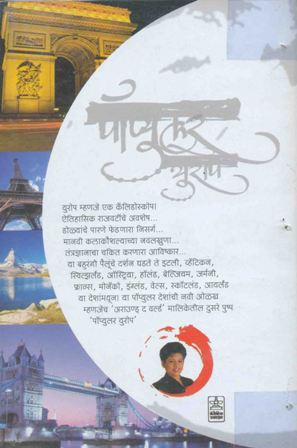 पॉप्युलर
युरोप
युरोप म्हणजे एक कॅलिडोस्कोप!
ऐतिहासिक राजवटींचे अवशेष...
डोळ्यांचे पारणे फेडणारा निसर्ग...
मानवी कलाकौशल्याच्या नवलखुणा...
तंत्रज्ञानाचा चकित करणारा आविष्कार...
या बहुरंगी पैलूंचे दर्शन घडते ते इटली, व्हॅटिकन,
स्वित्झर्लंड, ऑस्ट्रिया, हॉलंड, बेल्जियम, जर्मनी,
फ्रान्स, मोनॅको, इंग्लंड, वेल्स, स्कॉटलंड, आयर्लंड
या देशांमधून! या पॉप्युलर देशांची नवी ओळख
म्हणजेच 'अराउण्ड द वर्ल्ड' मालिकेतील दुसरे पुष्प
'पॉप्युलर युरोप'